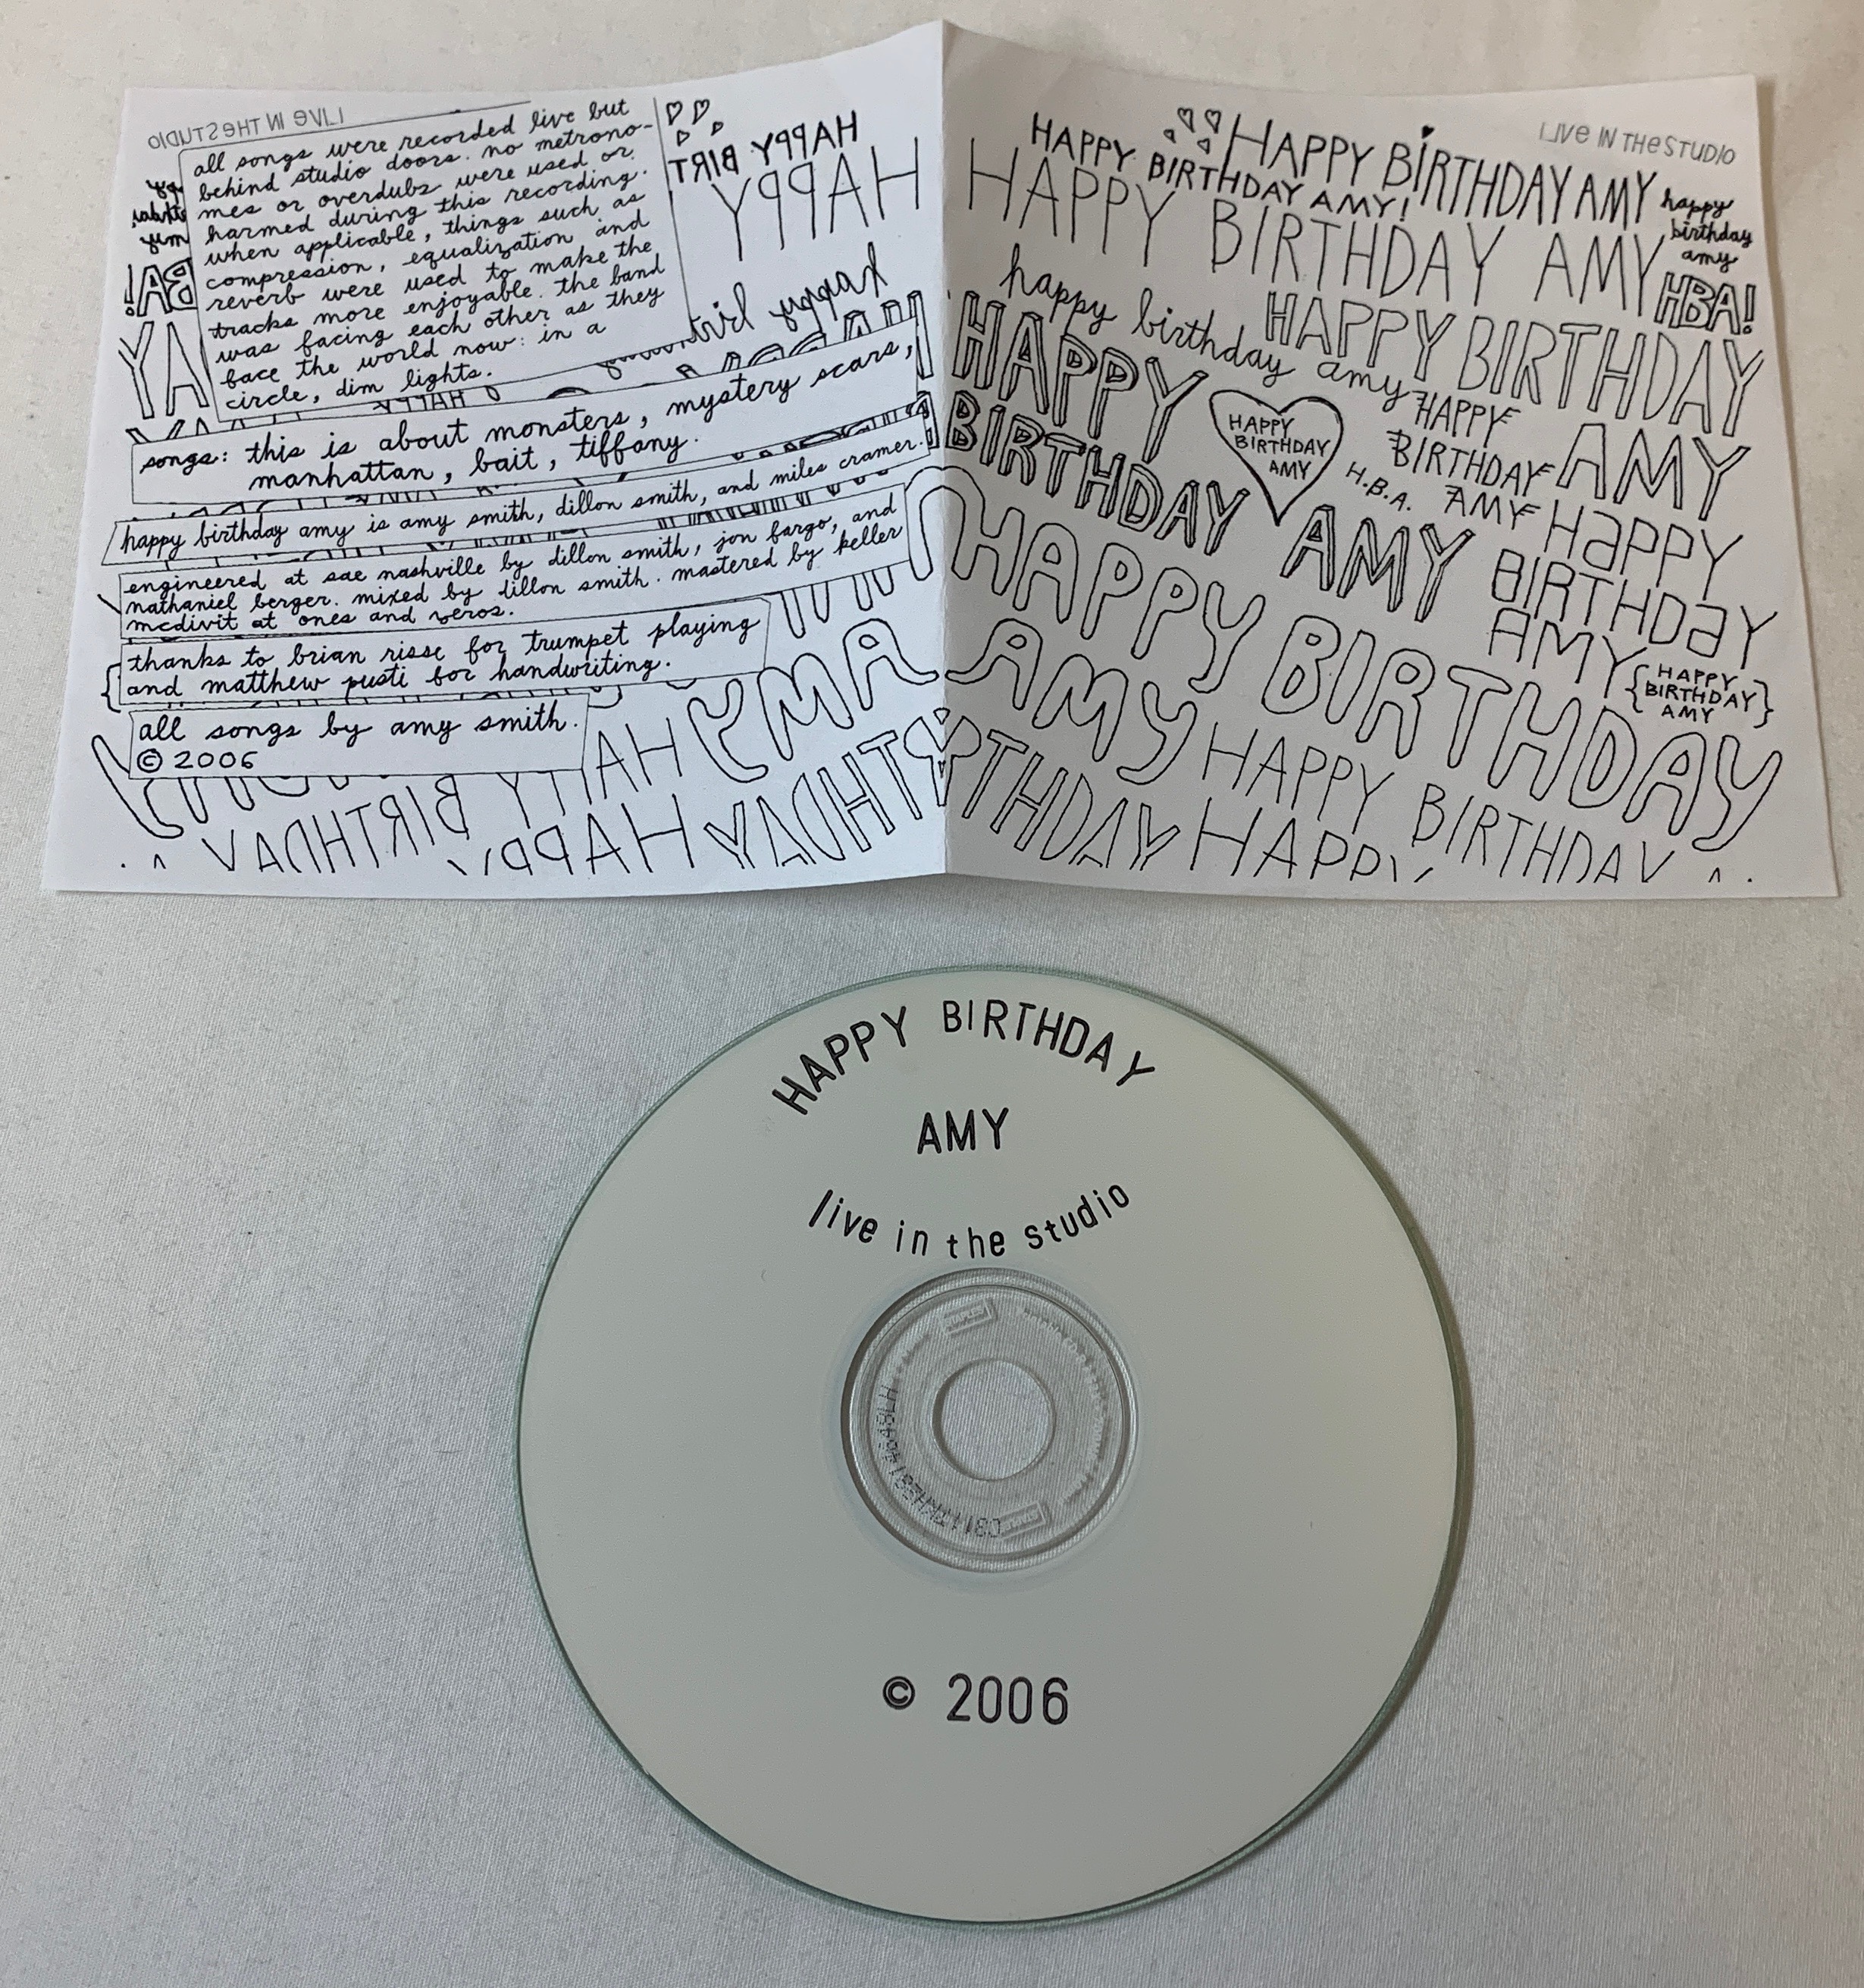 LIVE IN THE STUDIO
all songs were recorded live but
behind studio doors. no metrono-
mes or overdubs were used or
harmed during this recording.
when applicable, things such as
compression, equalization and
reverb were used to make the
tracks more enjoyable. the band
was facing each other as they
face the world now: in a
circle, dim lights.
HAPPY BIRT
HAPPY
happy birt
BA!
YA
songs: this is about monsters, mystery scars,
manhattan, bait, tiffany.
happy birthday amy is amy smith, dillon smith, and miles cramer.
engineered at sae nashville by dillon smith, jon fargo, and
nathaniel berger. mixed by dillon smith. mastered by keller
mcdivit at ones and zeros.
thanks to brian risse for trumpet playing
and matthew pusti for handwriting.
all songs by amy smith.
© 2006
AMY
HAPPY BIRTHDAY
RTHDAY HAPPY
LIVE IN THE STUDIO
HAPPY BIRTHDAY AMY!
HAPPY BIRTHDAY AMY
happy
birthday
amy
HAPPY BIRTHDAY AMY
HBA!
happy birthday amy
HAPPY BIRTHDAY
AMY
HAPPY
BIRTHDAY
AMY
HAPPY
BIRTHDAY
AMY
HAPPY
BIRTHDAY
AMY
H.B.A.
HAPPY
BIRTHDAY
AMY
HAPPY BIRTHDAY
AMY
HAPPY
BIRTHDAY
AMY
HAPPY BIRTHDAY
RTHDAY HAPPY
HAPPY BIRTHDAY
AMY
live in the studio
© 2006